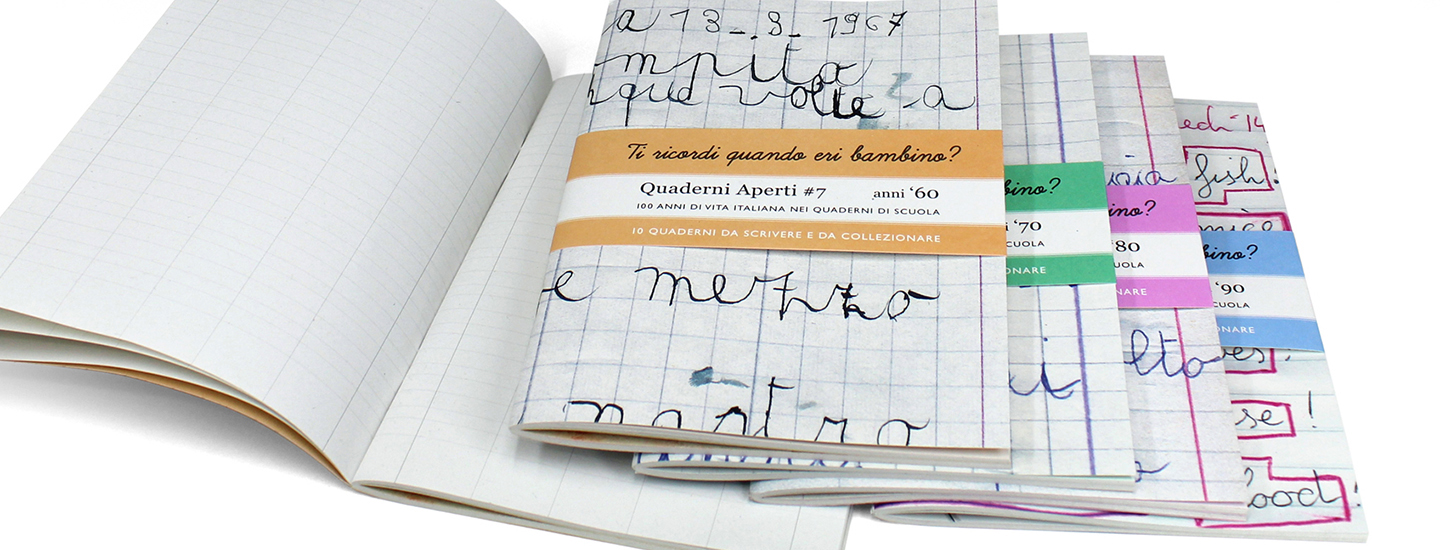 a 13-3-1967
mpita
que volte -a
Ti ricordi quando eri bambino?
Quaderni Aperti #7 anni '60
100 ANNI DI VITA ITALIANA NEI QUADERNI DI SCUOLA
10 QUADERNI DA SCRIVERE E DA COLLEZIONARE
e mezzo
nastro
bino?
'70
CUOLA
ONARE
ino?
80
UOLA
NARE
lto
edi '14
fish!
bino?
'90
CUOLA
ONARE
es!
se!
ood!